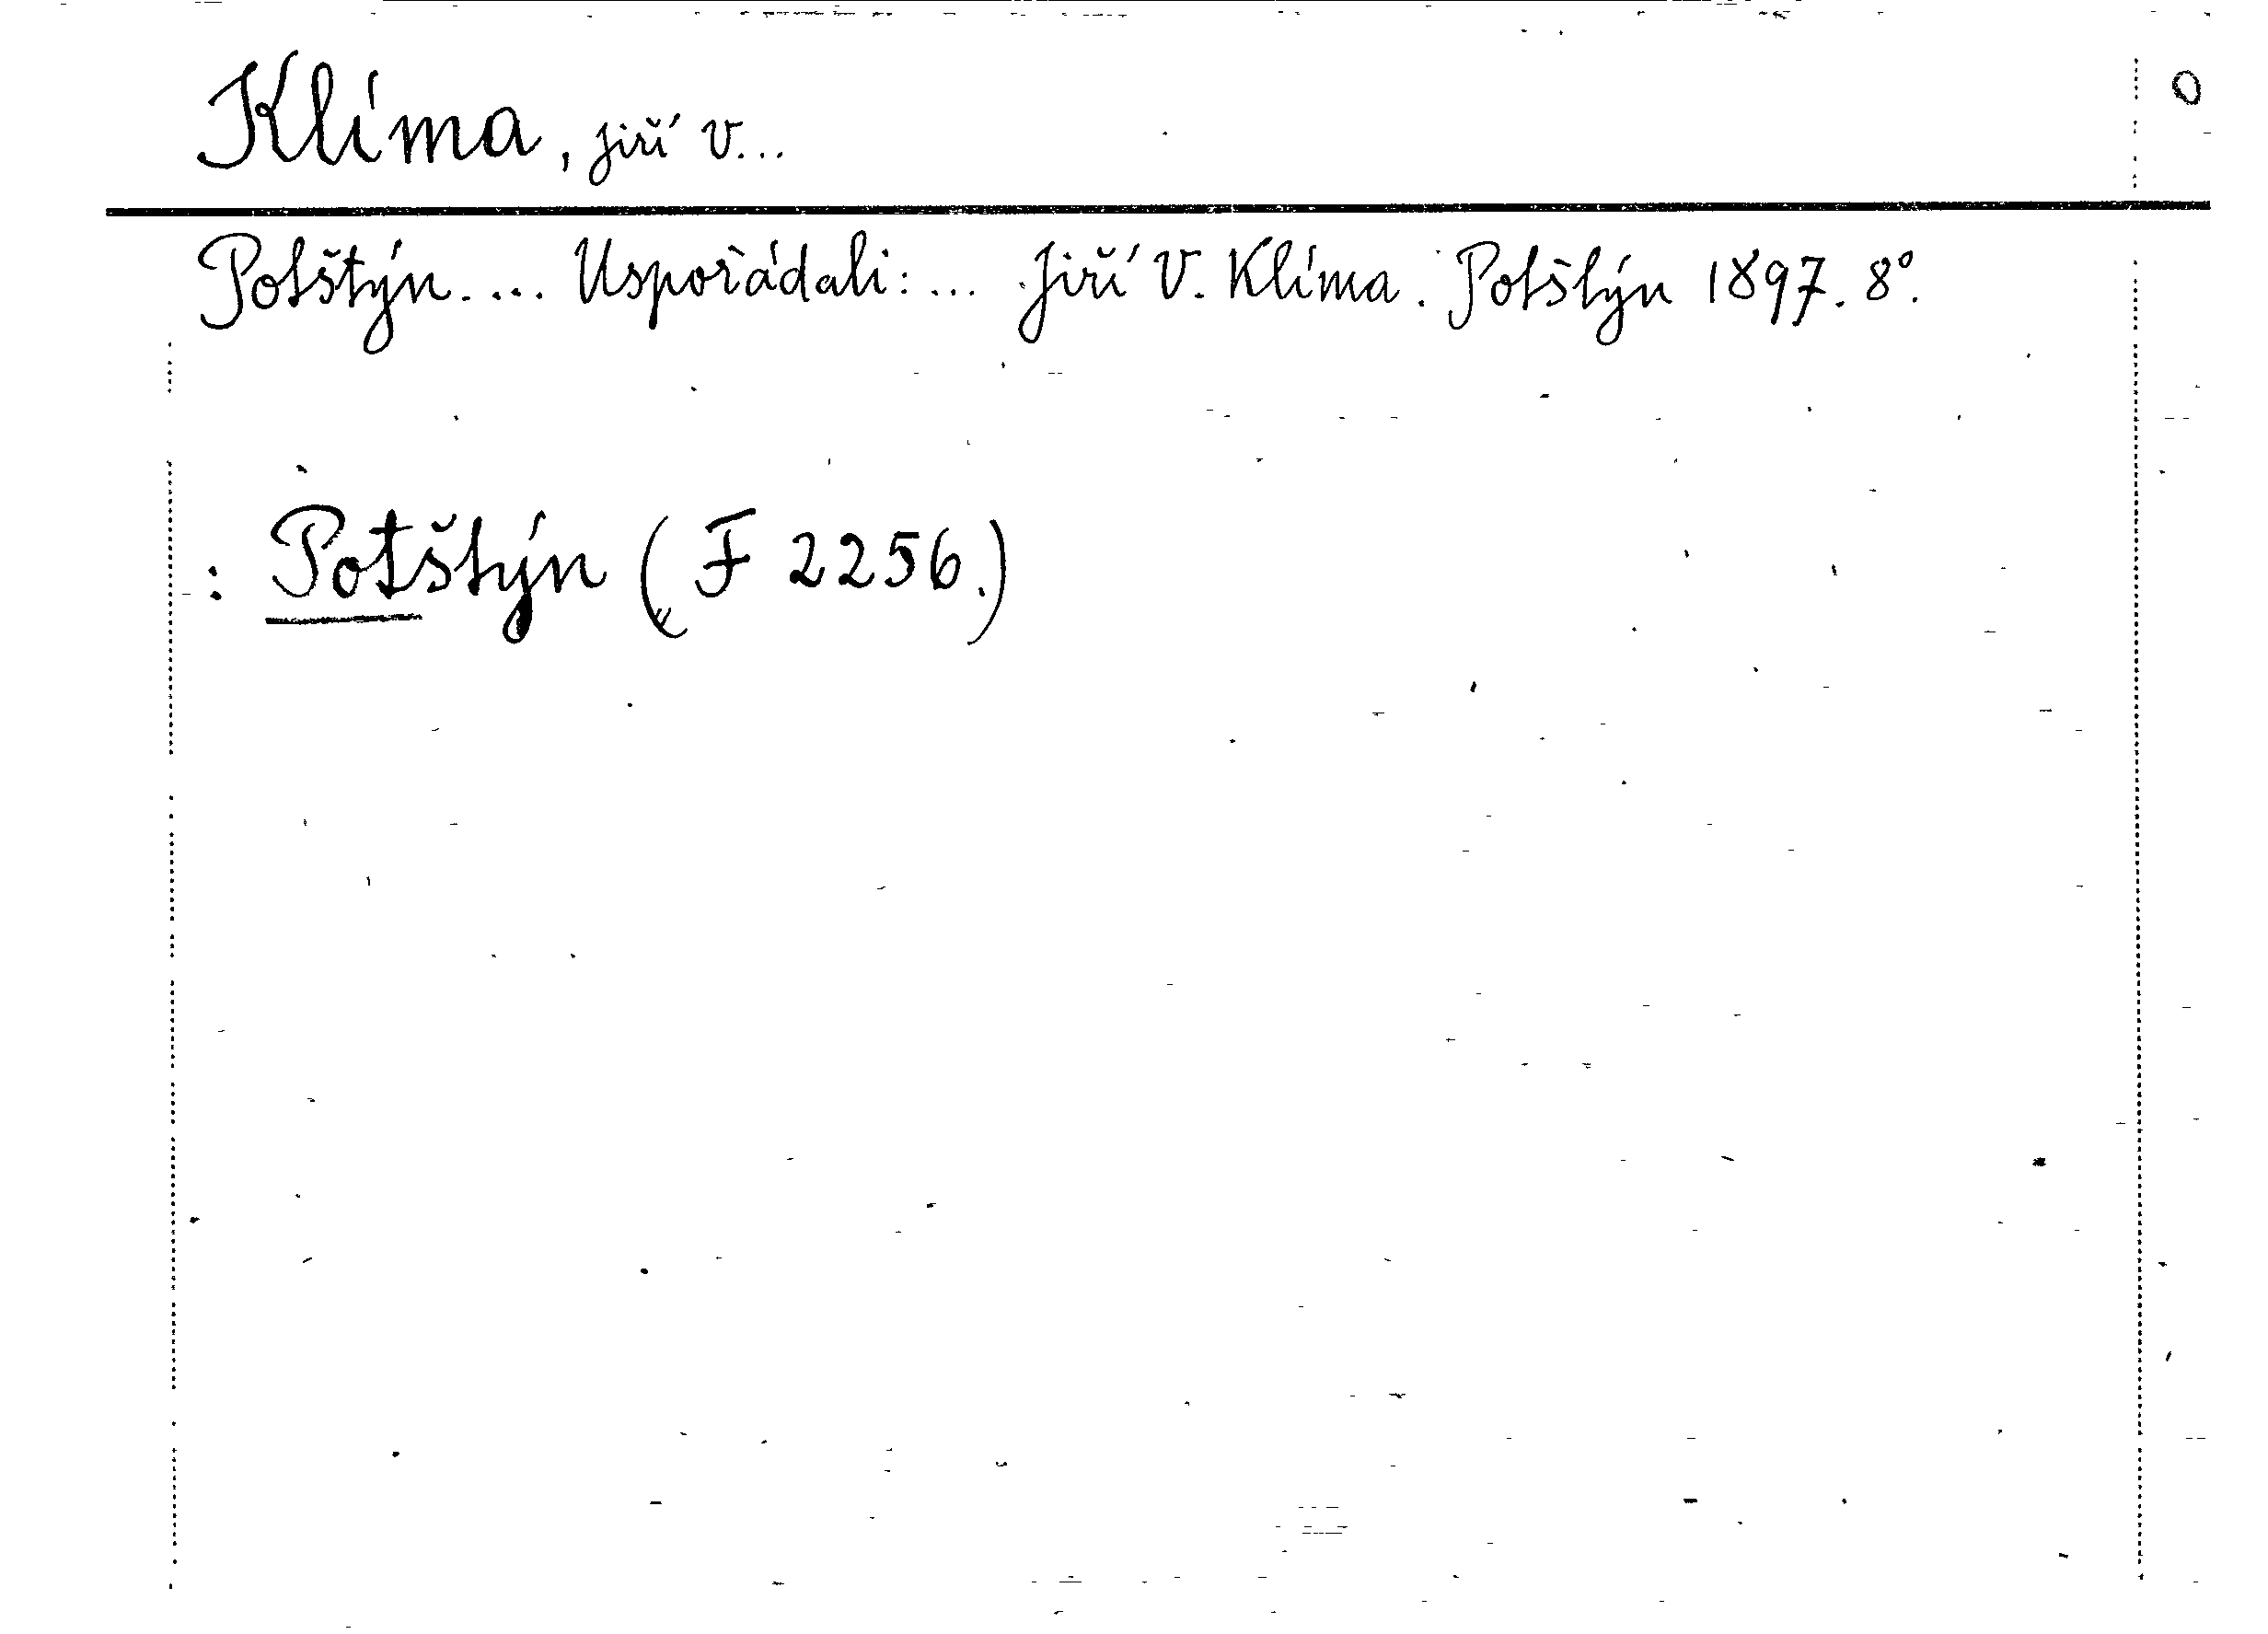 Klíma, Jiří V... O
Potštýn.... Uspořádali:... Jiří V. Klíma. Potštýn 1897. 8°.
: Potštýn (F 2256.)